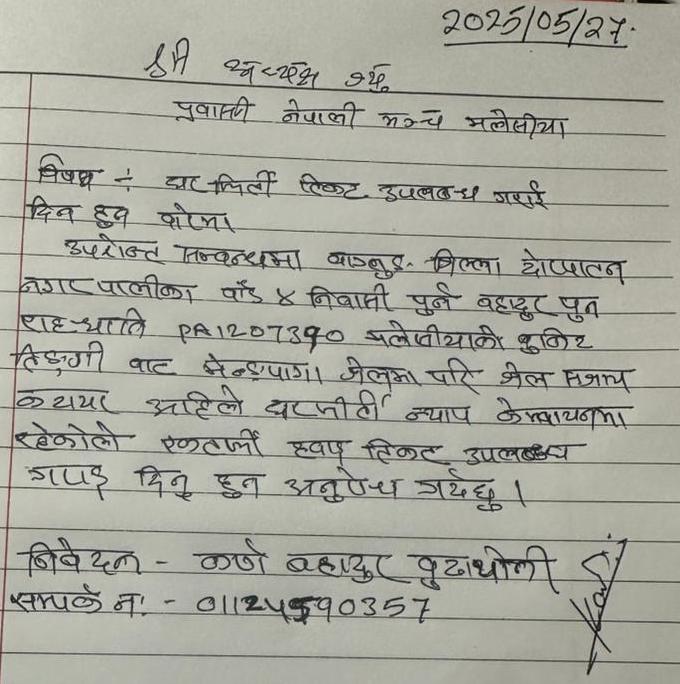 2025/05/27.
श्री अध्यक्ष ज्यू
प्रवासी नेपाली मञ्च मलेसीया
विषय ÷ घर फिर्ती टिकट उपलब्ध गराई
दिनु हुन बारेमा
उपरोक्त सम्बन्धमा बाग्लुङ जिल्ला ढोरपाटन
नगरपालीका वडि ४ निवासी पुर्न बहादुर पुन
राहदानि PA1207390 मलेसीयाको बुकिट
तिङ्गी बाट जेलमा परि जेल सजाय
अहिले घरफीर्ती क्याप
रहेकोले एकतर्फी हवाई टिकट उपलब्ध
गराइ दिनु हुन अनुरोध गर्दछु ।
निवेदन - कर्ण बहादुर बुढाथोकी
सम्पर्क नं. -